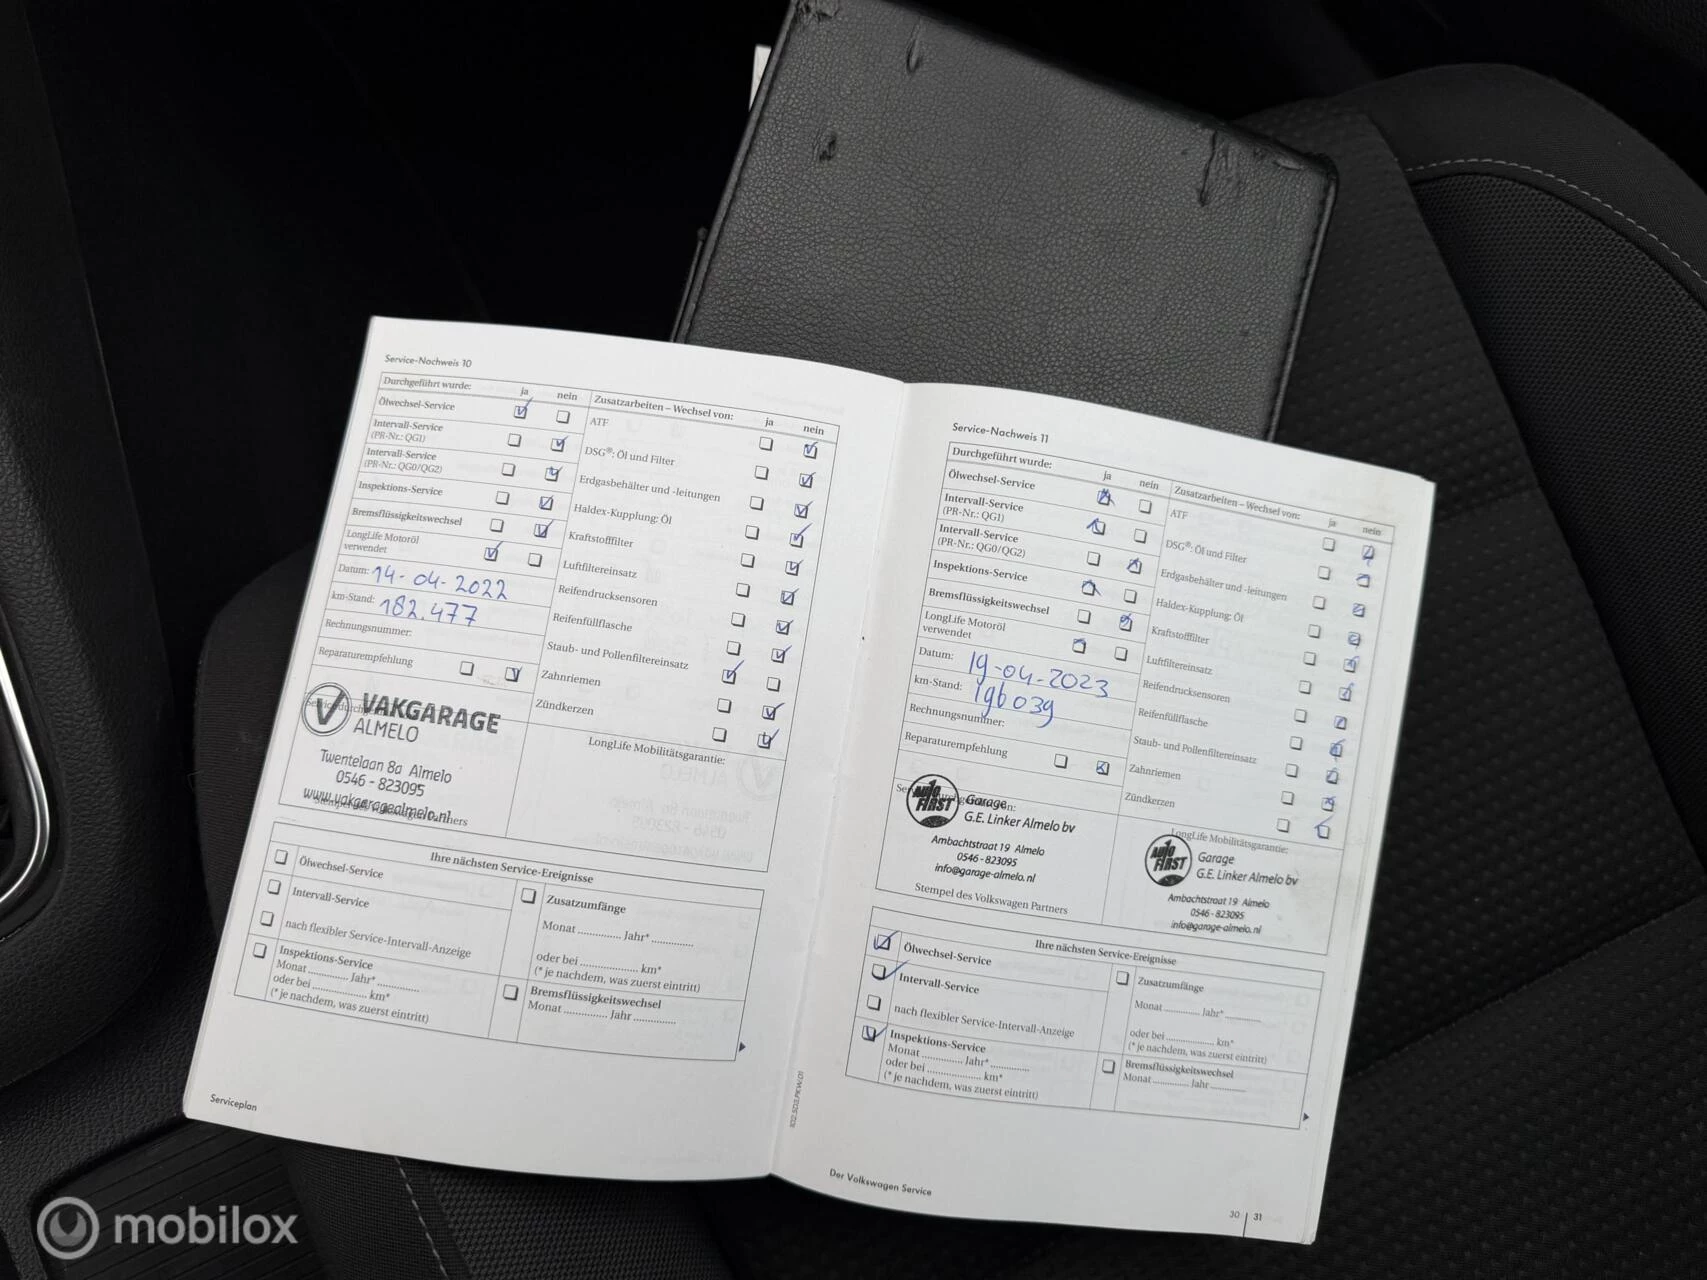 Service-Nachweis 10
Durchgeführt wurde:
ja
nein
Ölwechsel-Service
Intervall-Service
(PR-Nr.: QG1)
Intervall-Service
(PR-Nr.: QG0/QG2)
Inspektions-Service
Bremsflüssigkeitswechsel
LongLife Motoröl
verwendet
Datum: 14-04-2022
km-Stand: 182.477
Rechnungsnummer:
Reparaturempfehlung
VAKGARAGE
ALMELO
Twentelaan 8a Almelo
0546 - 823095
www.vakgaragealmelo.nl
Zusatzarbeiten – Wechsel von:
ja
nein
ATF
DSG®: Öl und Filter
Erdgasbehälter und -leitungen
Haldex-Kupplung: Öl
Kraftstofffilter
Luftfiltereinsatz
Reifendrucksensoren
Reifenfüllflasche
Staub- und Pollenfiltereinsatz
Zahnriemen
Zündkerzen
LongLife Mobilitätsgarantie:
Ihre nächsten Service-Ereignisse
Ölwechsel-Service
Intervall-Service
nach flexibler Service-Intervall-Anzeige
Inspektions-Service
Monat ............ Jahr* ............
oder bei ................ km*
(* je nachdem, was zuerst eintritt)
Zusatzumfänge
Monat ............ Jahr* ............
oder bei ................ km*
(* je nachdem, was zuerst eintritt)
Bremsflüssigkeitswechsel
Monat ............ Jahr ............
Serviceplan
Service-Nachweis 11
Durchgeführt wurde:
ja
nein
Ölwechsel-Service
Intervall-Service
(PR-Nr.: QG1)
Intervall-Service
(PR-Nr.: QG0/QG2)
Inspektions-Service
Bremsflüssigkeitswechsel
LongLife Motoröl
verwendet
Datum: 19-04-2023
km-Stand: 196039
Rechnungsnummer:
Reparaturempfehlung
AUTO FIRST
Garage
G.E. Linker Almelo bv
Ambachtstraat 19 Almelo
0546 - 823095
info@garage-almelo.nl
Stempel des Volkswagen Partners
Zusatzarbeiten – Wechsel von:
ja
nein
ATF
DSG®: Öl und Filter
Erdgasbehälter und -leitungen
Haldex-Kupplung: Öl
Kraftstofffilter
Luftfiltereinsatz
Reifendrucksensoren
Reifenfüllflasche
Staub- und Pollenfiltereinsatz
Zahnriemen
Zündkerzen
LongLife Mobilitätsgarantie:
AUTO FIRST
Garage
G.E. Linker Almelo bv
Ambachtstraat 19 Almelo
0546 - 823095
info@garage-almelo.nl
Ihre nächsten Service-Ereignisse
Ölwechsel-Service
Intervall-Service
nach flexibler Service-Intervall-Anzeige
Inspektions-Service
Monat ............ Jahr* ............
oder bei ................ km*
(* je nachdem, was zuerst eintritt)
Zusatzumfänge
Monat ............ Jahr* ............
oder bei ................ km*
(* je nachdem, was zuerst eintritt)
Bremsflüssigkeitswechsel
Monat ............ Jahr ............
Der Volkswagen Service
30 | 31
mobilox